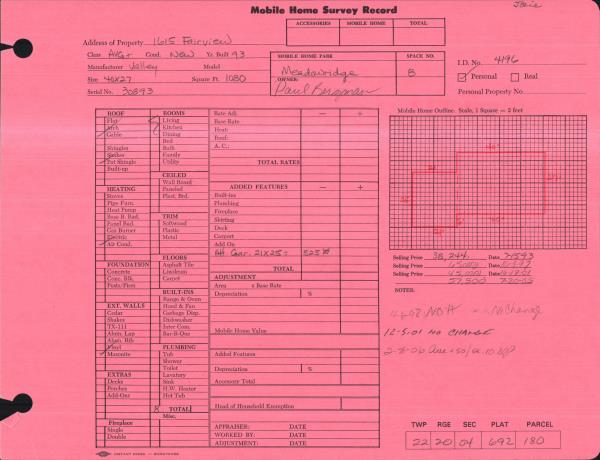 Mobile Home Survey Record
Josie
ACCESSORIES MOBILE HOME TOTAL
Address of Property 1615 Fairview
Class Avg+ Cond. New Yr. Built 93
Manufacturer Valley Model
Size 40X27 Square Ft. 1080
Serial No. 30893
MOBILE HOME PARK SPACE NO.
Meadowridge 8
OWNER:
Paul Bergman
I.D. No. 4196
Personal Real
Personal Property No.
ROOF
Flat
Arch
Gable
Shingles
Shakes
Pat Shingle
Built-up
HEATING
Stoves
Pipe Furn.
Heat Pump
Base B. Rad.
Panel Rad.
Gas Burner
Electric
Air Cond.
FOUNDATION
Concrete
Conc. Blk.
Posts/Piers
EXT. WALLS
Cedar
Shakes
TX-111
Alum. Lap
Alum. Rib
Vinyl
Masonite
EXTRAS
Decks
Porches
Add-Ons
Fireplace
Single
Double
ROOMS
Living
Kitchen
Dining
Bed
Bath
Family
Utility
CEILED
Wall Board
Paneled
Plast. Brd.
TRIM
Softwood
Plastic
Metal
FLOORS
Asphalt Tile
Linoleum
Carpet
BUILT-INS
Range & Oven
Hood & Fan
Garbage Disp.
Dishwasher
Inter Com.
Bar-B-Que
PLUMBING
Tub
Shower
Toilet
Lavatory
Sink
H.W. Heater
Hot Tub
8 TOTAL
Misc.
Rate Adj. — +
Base Rate
Heat:
Roof:
A. C.:
TOTAL RATES
ADDED FEATURES — +
Built-ins
Plumbing
Fireplace
Skirting
Deck
Carport
Add On
Att Gar. 21X25= 525
TOTAL
ADJUSTMENT
Area x Base Rate
Depreciation %
Mobile Home Value
Added Features
Depreciation %
Accessory Total
Head of Household Exemption
APPRAISER: DATE
WORKED BY: DATE
ADJUSTMENT: DATE
Mobile Home Outline. Scale, 1 Square = 2 feet
Selling Price 38,244 Date
Selling Price Date
Selling Price Date
57,500
NOTES:
No Change
12-5-01 NO CHANGE
TWP RGE SEC PLAT PARCEL
22 20 04 692 180